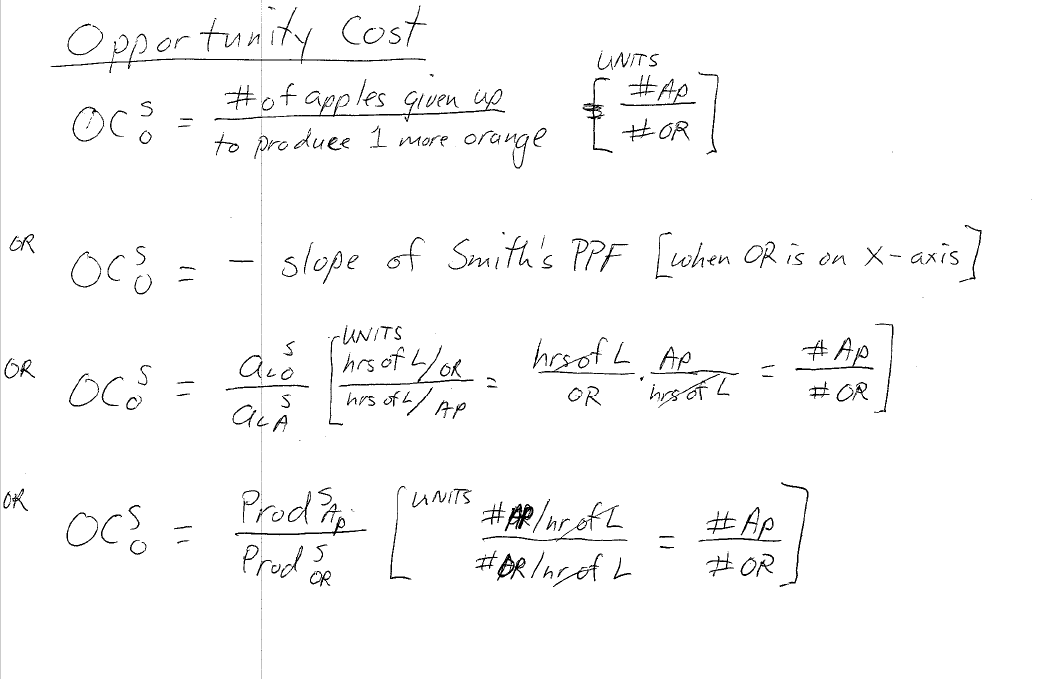 Opportunity Cost
OC^S_O = # of apples given up / to produce 1 more orange UNITS [#Ap / #OR]
OR OC^S_O = - slope of Smith's PPF [when OR is on X-axis]
OR OC^S_O = a_LO^S / a_LA^S [UNITS hrs of L/OR / hrs of L/AP = hrs of L / OR · AP / hrs of L = #Ap / #OR]
OR OC^S_O = Prod^S_Ap / Prod^S_OR [UNITS #AP/hr of L / #OR/hr of L = #Ap / #OR]